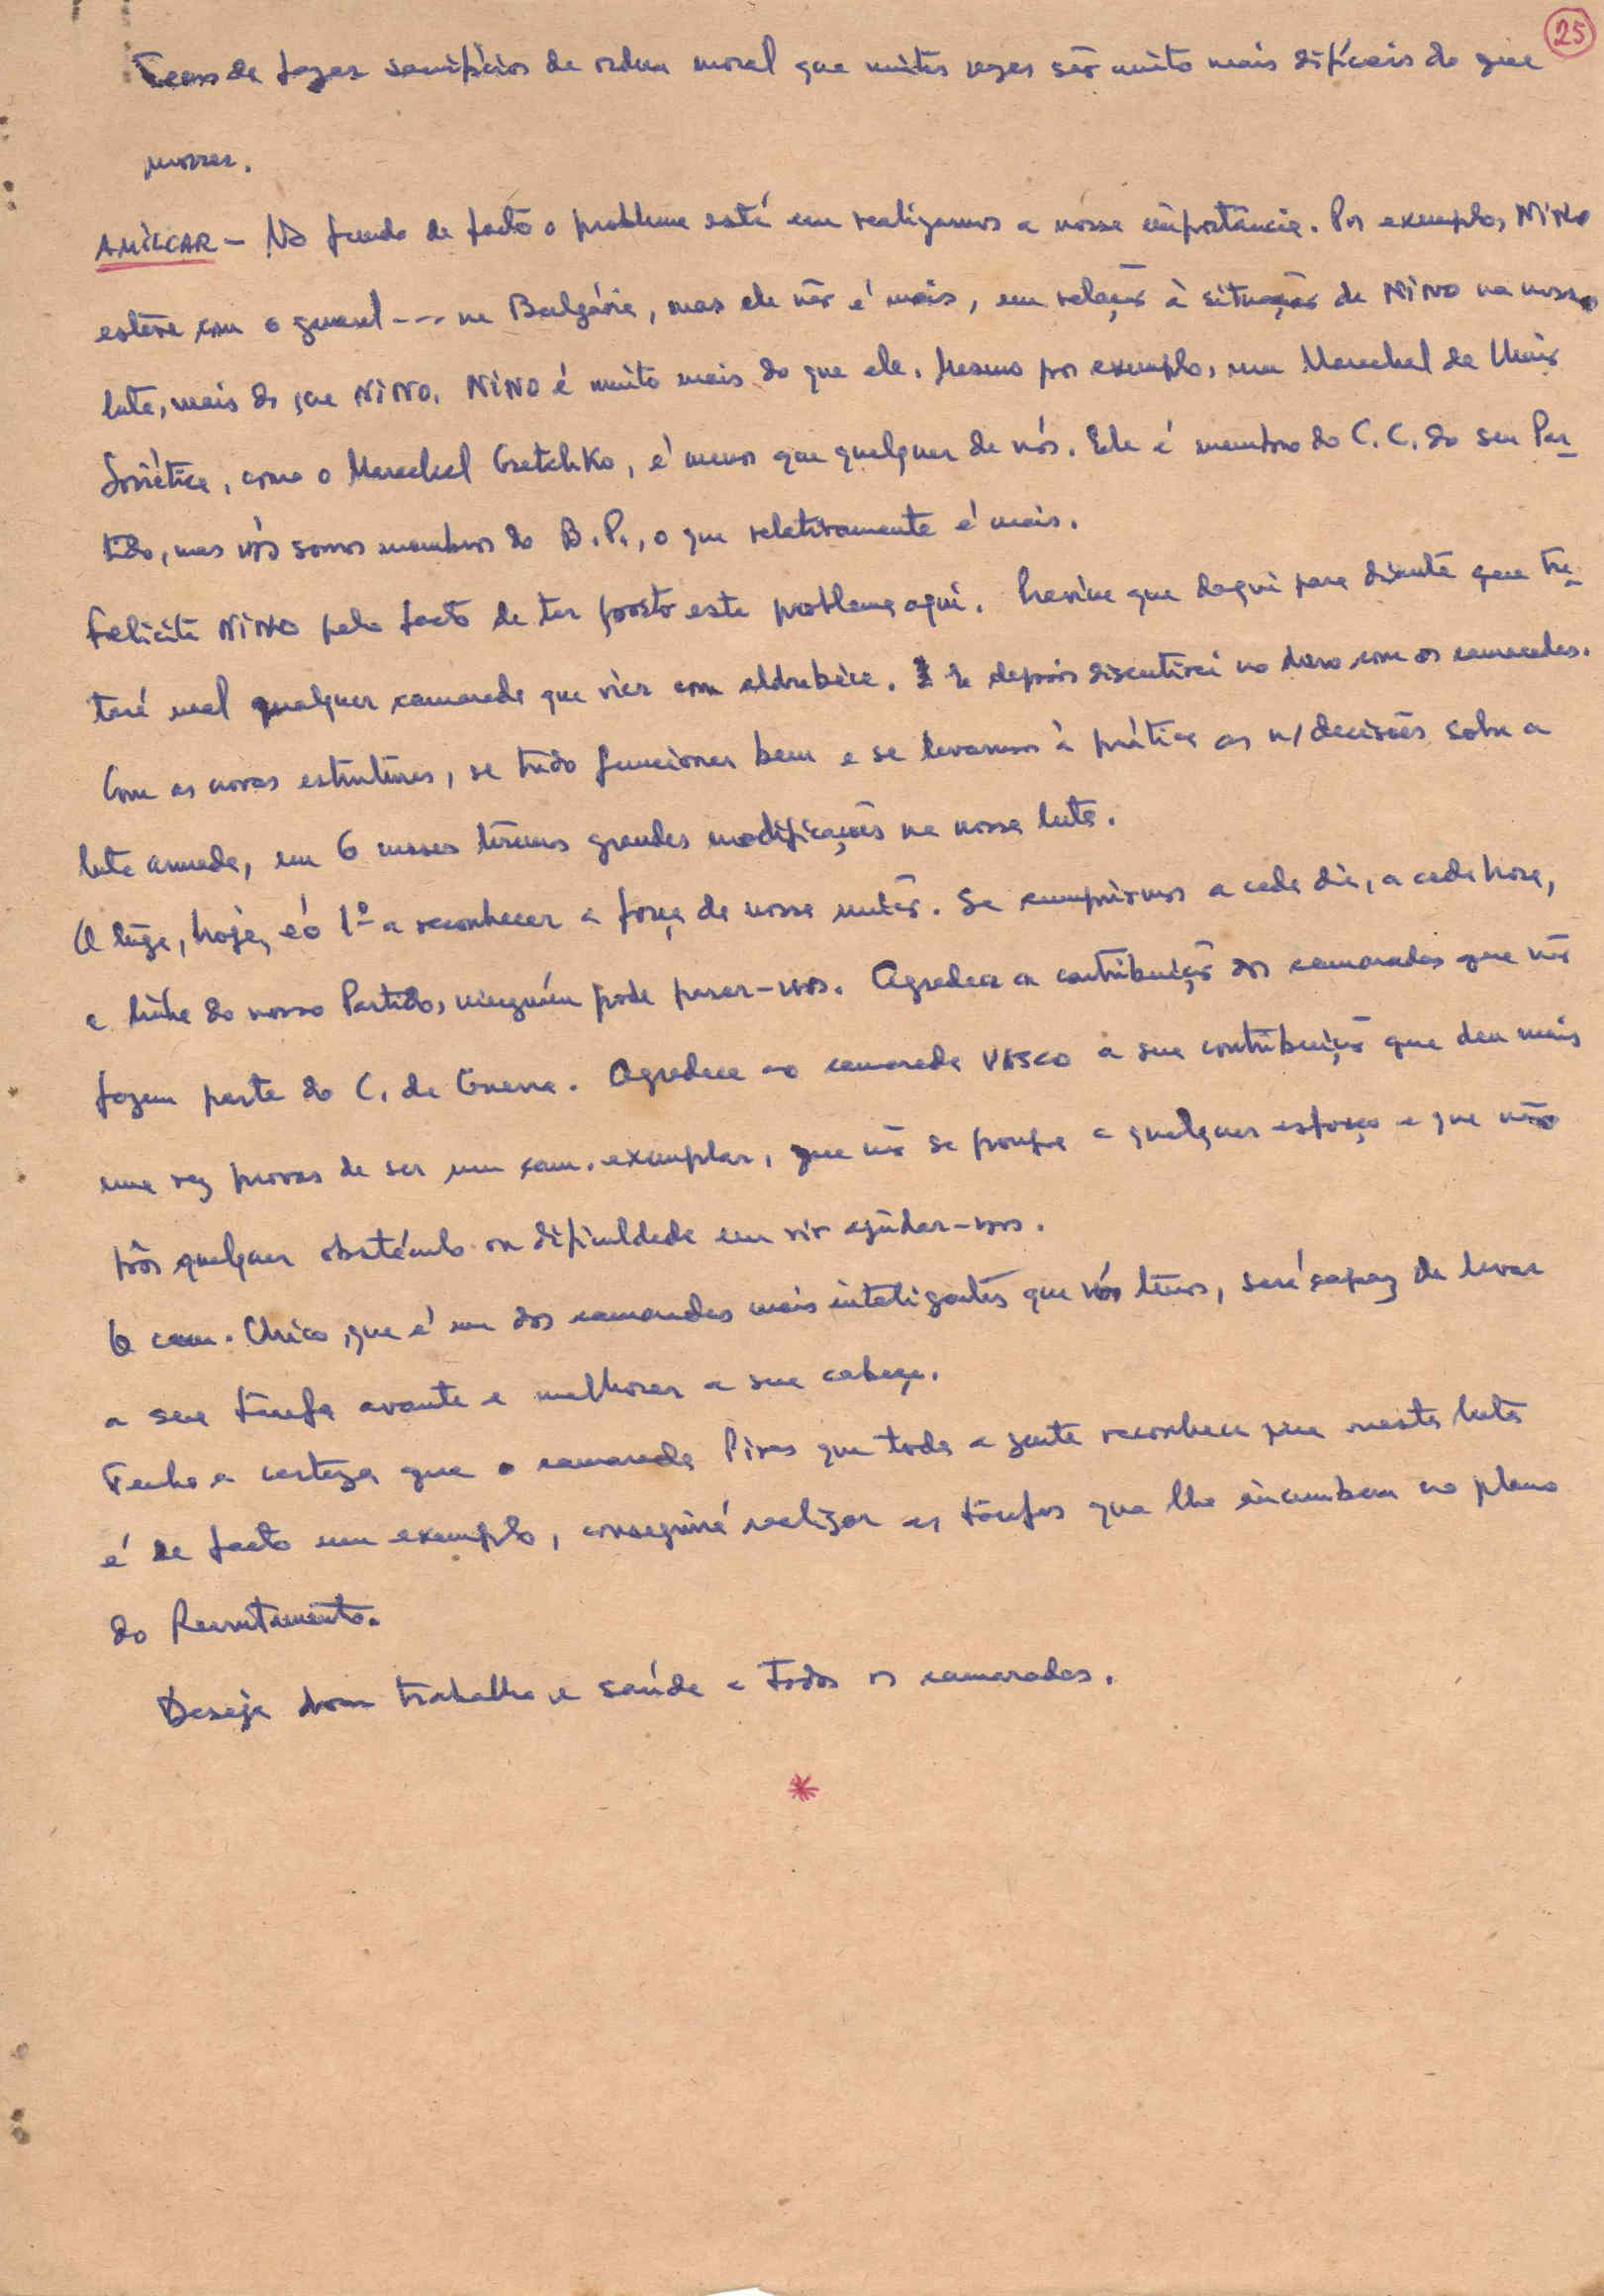 25
Temos de fazer sacrifícios de ordem moral que muitas vezes são muito mais difíceis do que
morrer.
AMILCAR - No fundo de facto o problema está em realizarmos a nossa importância. Por exemplo, NINO
esteve com o general --- na Bulgária, mas ele não é mais, em relação à situação de NINO na nossa
luta, mais do que NINO. NINO é muito mais do que ele. Mesmo por exemplo, um Marechal da União
Soviética, como o Marechal Gretchko, é menos que qualquer de nós. Ele é membro do C.C. do seu Par-
tido, mas nós somos membros do B.P., o que relativamente é mais.
Felicita NINO pelo facto de ter posto este problema aqui. Previne que daqui para diante que tra-
tará mal qualquer camarada que vier com aldrabice. Se depois discutirei no duro com os camaradas.
Com as novas estruturas, se tudo funcionar bem e se levarmos à prática as n/decisões sobre a
luta armada, em 6 meses teremos grandes modificações na nossa luta.
O tuga, hoje, é o 1º a reconhecer a força da nossa união. Se cumprirmos a cada dia, a cada hora,
a linha do nosso Partido, ninguém pode parar-nos. Agradece a contribuição dos camaradas que não
fazem parte do C. de Guerra. Agradece ao camarada VASCO a sua contribuição que deu mais
uma vez provas de ser um cam. exemplar, que não se poupa a qualquer esforço e que não
pôs qualquer obstáculo ou dificuldade em vir ajudar-nos.
O cam. Chico, que é um dos camaradas mais inteligentes que nós temos, será capaz de levar
a sua tarefa avante e melhorar a sua cabeça.
Tenho a certeza que o camarada Pires que toda a gente reconhece que nesta luta
é de facto um exemplo, conseguirá realizar as tarefas que lhe incumbem no plano
do Recrutamento.
Deseja bom trabalho e saúde a todos os camaradas.
*